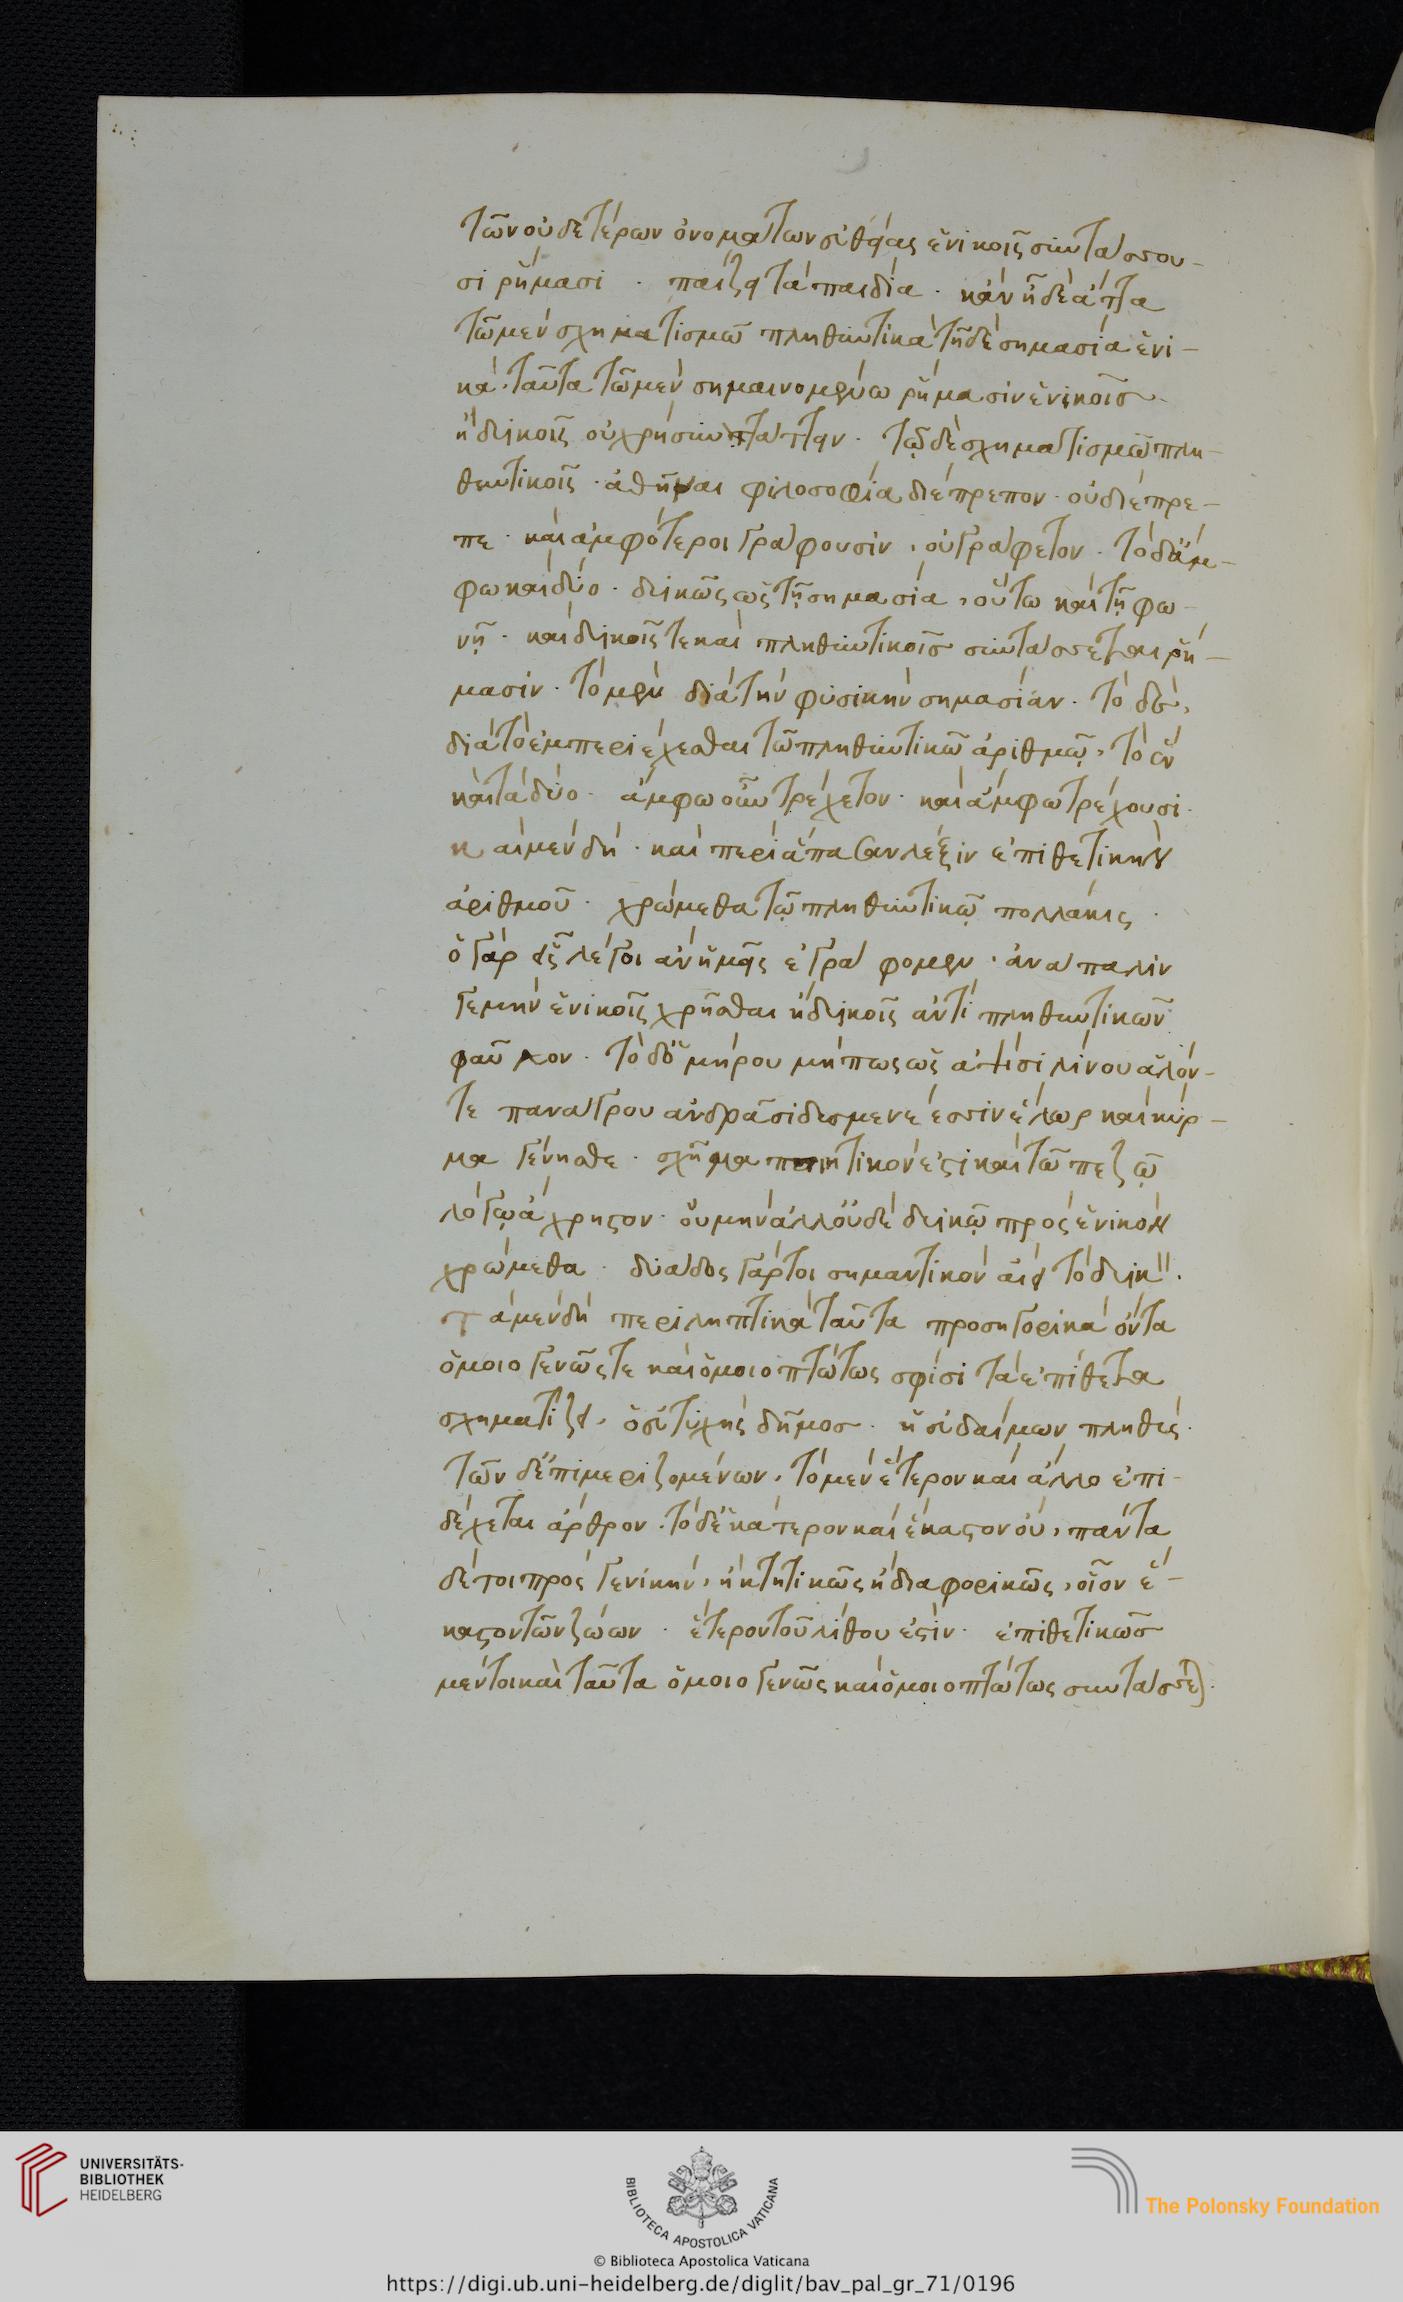 τῶν οὐδετέρων ὀνομάτων εὐθείας ἑνικοῖς συντάσσου-
σι ῥήμασι · παίζει τὰ παιδία · κἂν ᾖ δὲ ἄττα
τῶ μὲν σχηματισμῶ πληθυντικὰ τῇ δὲ σημασία ἑνι-
κά, ταῦτα τῶ μὲν σημαινομένω ῥήμασιν ἑνικοῖς
ἢ δυϊκοῖς οὐ χρὴ συντάττειν · τῷ δὲ σχηματισμῶ πλη-
θυντικοῖς · ἀθῆναι φιλοσοφία διέπρεπον · οὐ διέπρε-
πε · καὶ ἀμφότεροι γράφουσιν, οὐ γράφετον · τὸ δ' ἄμ-
φω καὶ δύο · δυϊκῶς ὡς τῇ σημασία, οὕτω καὶ τῇ φω-
νῇ · καὶ δυϊκοῖς τε καὶ πληθυντικοῖς συντάσσεται ῥή-
μασιν · τὸ μὲν διὰ τὴν φυσικὴν σημασίαν · τὸ δὲ,
διὰ τὸ ἐμπεριέχεσθαι τῶ πληθυντικῶ ἀριθμῷ, τὸ ἓν
καὶ τὰ δύο · ἄμφω οὖν τρέχετον · καὶ ἄμφω τρέχουσι ·
καὶ μὲν δὴ · καὶ περὶ ἅπασαν λέξιν ἐπιθετικὴν
ἀριθμοῦ · χρώμεθα τῷ πληθυντικῷ πολλάκις ·
ὁ γὰρ εἷς λέγοι ἂν ἡμεῖς ἐγράφομεν · ἀνάπαλιν
γε μὴν ἑνικοῖς χρῆσθαι ἢ δυϊκοῖς ἀντὶ πληθυντικῶν
φαῦλον · τὸ δ' ὁμήρου μήπως ὡς ἀψῖσι λίνου ἁλόν-
τε πανάγρου ἀνδράσι δυσμενέεσσιν ἕλωρ καὶ κύρ-
μα γένησθε · σχῆμα ποιητικόν ἐστι καὶ τῶ πεζῷ
λόγῳ ἄχρηστον · οὐ μὴν ἀλλ' οὐδὲ δυϊκῷ πρὸς ἑνικὸν
χρώμεθα · δυάδος γάρ τοι σημαντικὸν ἀεὶ τὸ δυϊκὸν.
τὰ μὲν δὴ περιληπτικὰ ταῦτα προσηγορικὰ ὄντα
ὁμοιογενῶς τε καὶ ὁμοιοπτώτως σφίσι τὰ ἐπίθετα
σχηματίζει, ὁ εὐτυχὴς δῆμος · ἡ εὐδαίμων πληθὺς ·
τῶν δ' ἐπιμεριζομένων, τὸ μὲν ἕτερον καὶ ἄλλο ἐπι-
δέχεται ἄρθρον · τὸ δ' ἑκάτερον καὶ ἕκαστον οὐ, πάντα
δέ τοι πρὸς γενικήν, ἢ κτητικῶς ἢ διαφορικῶς, οἷον ἕ-
καστον τῶν ζώων · ἕτερον τοῦ λίθου ἐστίν · ἐπιθετικῶς
μέντοι καὶ ταῦτα ὁμοιογενῶς καὶ ὁμοιοπτώτως συντάσσεται ·
UNIVERSITÄTS-
BIBLIOTHEK
HEIDELBERG
BIBLIOTECA APOSTOLICA VATICANA
The Polonsky Foundation
© Biblioteca Apostolica Vaticana
https://digi.ub.uni-heidelberg.de/diglit/bav_pal_gr_71/0196